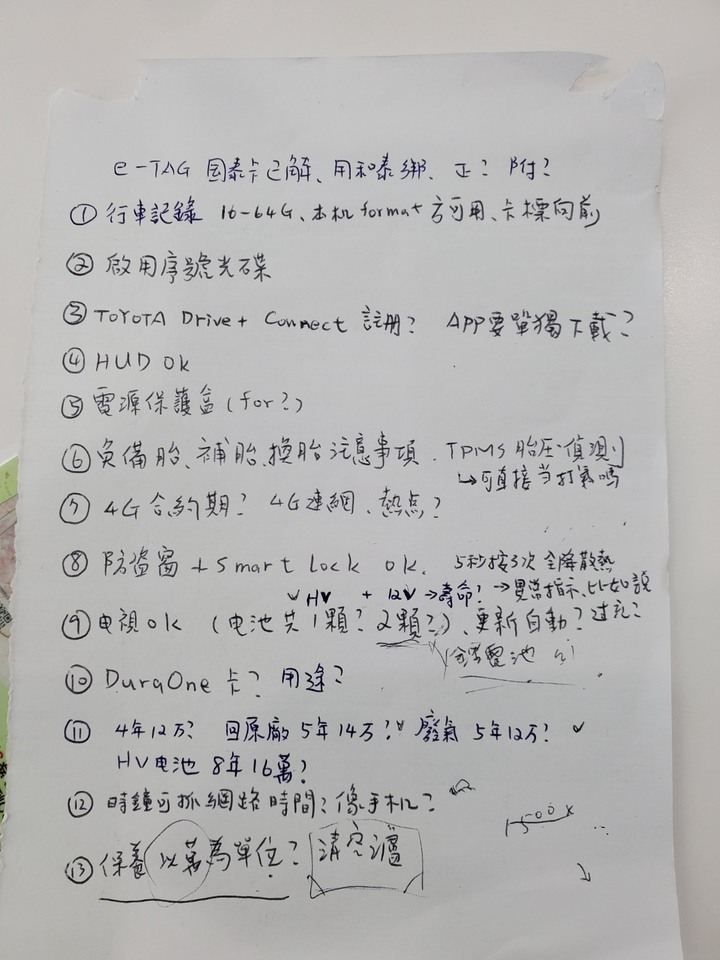 e-TAG 国泰卡已解、用和泰綁、正? 附?
① 行車記錄 16-64G、本机 format 方可用、卡標向前
② 啟用序號光碟
③ TOYOTA Drive+ Connect 註册? APP要單獨下載?
④ HUD ok
⑤ 電源保護盒 (for?)
⑥ 負備胎、補胎、換胎注意事項. TPMS 胎压偵測
↳可直接当打氣嗎
⑦ 4G 合約期? 4G 連網、熱点?
⑧ 防盜窗 + Smart Lock ok. 5秒按3次 全降散熱
✓ HV + 12V →壽命? →異常指示、比如說
⑨ 电視 ok (电池共1顆? 2顆?)、更新自動? 过充?
電池
⑩ DuraOne 卡? 用途?
⑪ 4年12万? 回原廠 5年14万? ✓ 廢氣 5年12万? ✓
HV电池 8年16萬?
⑫ 時鐘可抓網路時間? 像手机?
1500x
⑬ 保養以萬為單位? 清空濾